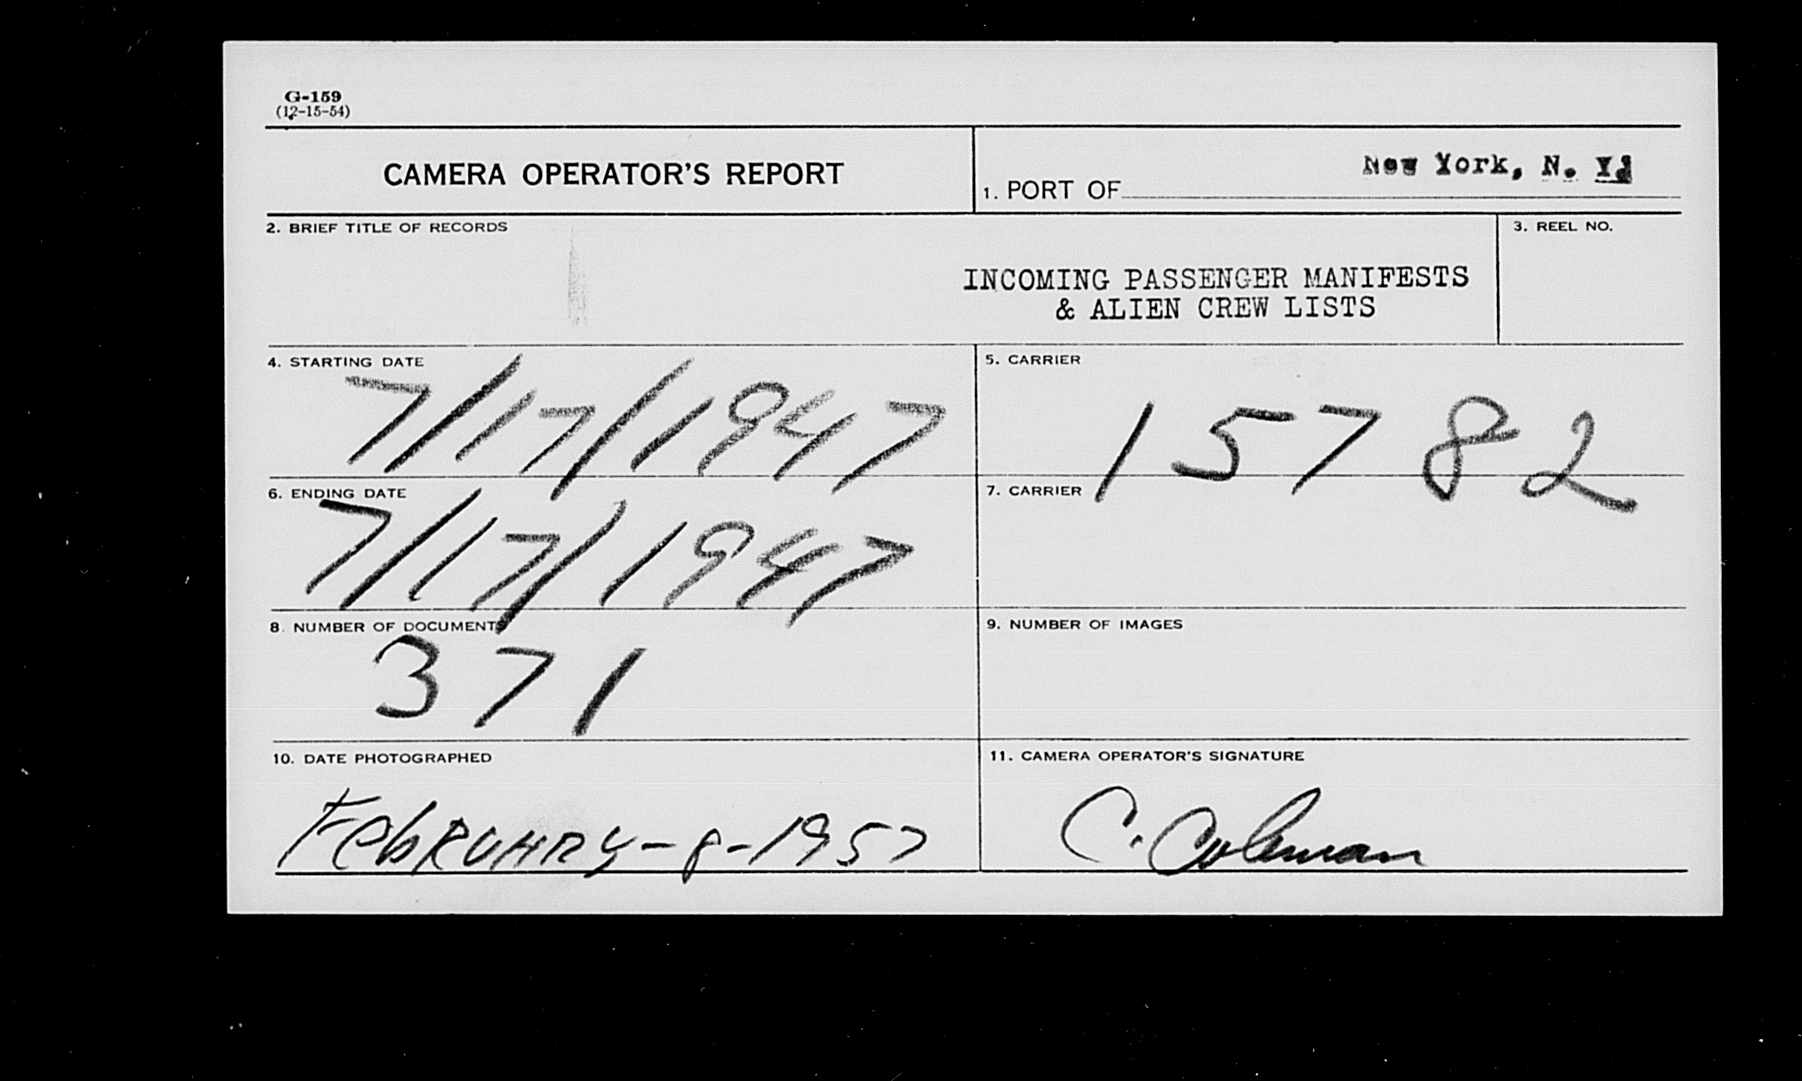 G-159
(12-15-54)
CAMERA OPERATOR'S REPORT
1. PORT OF New York, N. Y.
2. BRIEF TITLE OF RECORDS
INCOMING PASSENGER MANIFESTS
& ALIEN CREW LISTS
3. REEL NO.
4. STARTING DATE
7/17/1947
5. CARRIER
15782
6. ENDING DATE
7/17/1947
7. CARRIER
8. NUMBER OF DOCUMENTS
371
9. NUMBER OF IMAGES
10. DATE PHOTOGRAPHED
FebRUARy-8-1957
11. CAMERA OPERATOR'S SIGNATURE
C. Coleman